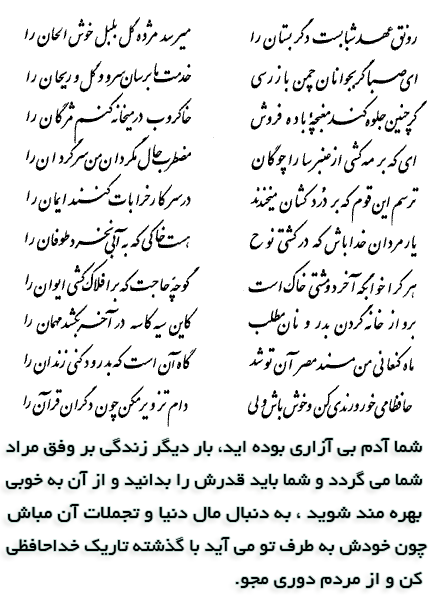 رونق عهد شبابست دگر بستان را میرسد مژده گل بلبل خوش الحان را
ای صبا گر بجوانان چمن باز رسی خدمت ما برسان سرو و گل و ریحان را
گر چنین جلوه کند مغبچهٔ باده فروش خاکروب در میخانه کنم مژگان را
ای که بر مه کشی از عنبر سارا چوگان مضطرب حال مگردان من سرگردان را
ترسم این قوم که بر درد کشان میخندند در سر کار خرابات کنند ایمان را
یار مردان خدا باش که در کشتی نوح هست خاکی که به آبی نخرد طوفان را
هر کرا خوابگه آخر دو مشتی خاک است گو چه حاجت که بر افلاک کشی ایوان را
برو از خانه گردون بدر و نان مطلب کاین سیه کاسه در آخر بکشد مهمان را
ماه کنعانی من مسند مصر آن تو شد گاه آن است که بدرود کنی زندان را
حافظا می خور و رندی کن و خوش باش ولی دام تزویر مکن چون دگران قرآن را
شما آدم بی آزاری بوده اید، بار دیگر زندگی بر وفق مراد
شما می گردد و شما باید قدرش را بدانید و از آن به خوبی
بهره مند شوید ، به دنبال مال دنیا و تجملات آن مباش
چون خودش به طرف تو می آید با گذشته تاریک خداحافظی
کن و از مردم دوری مجو.